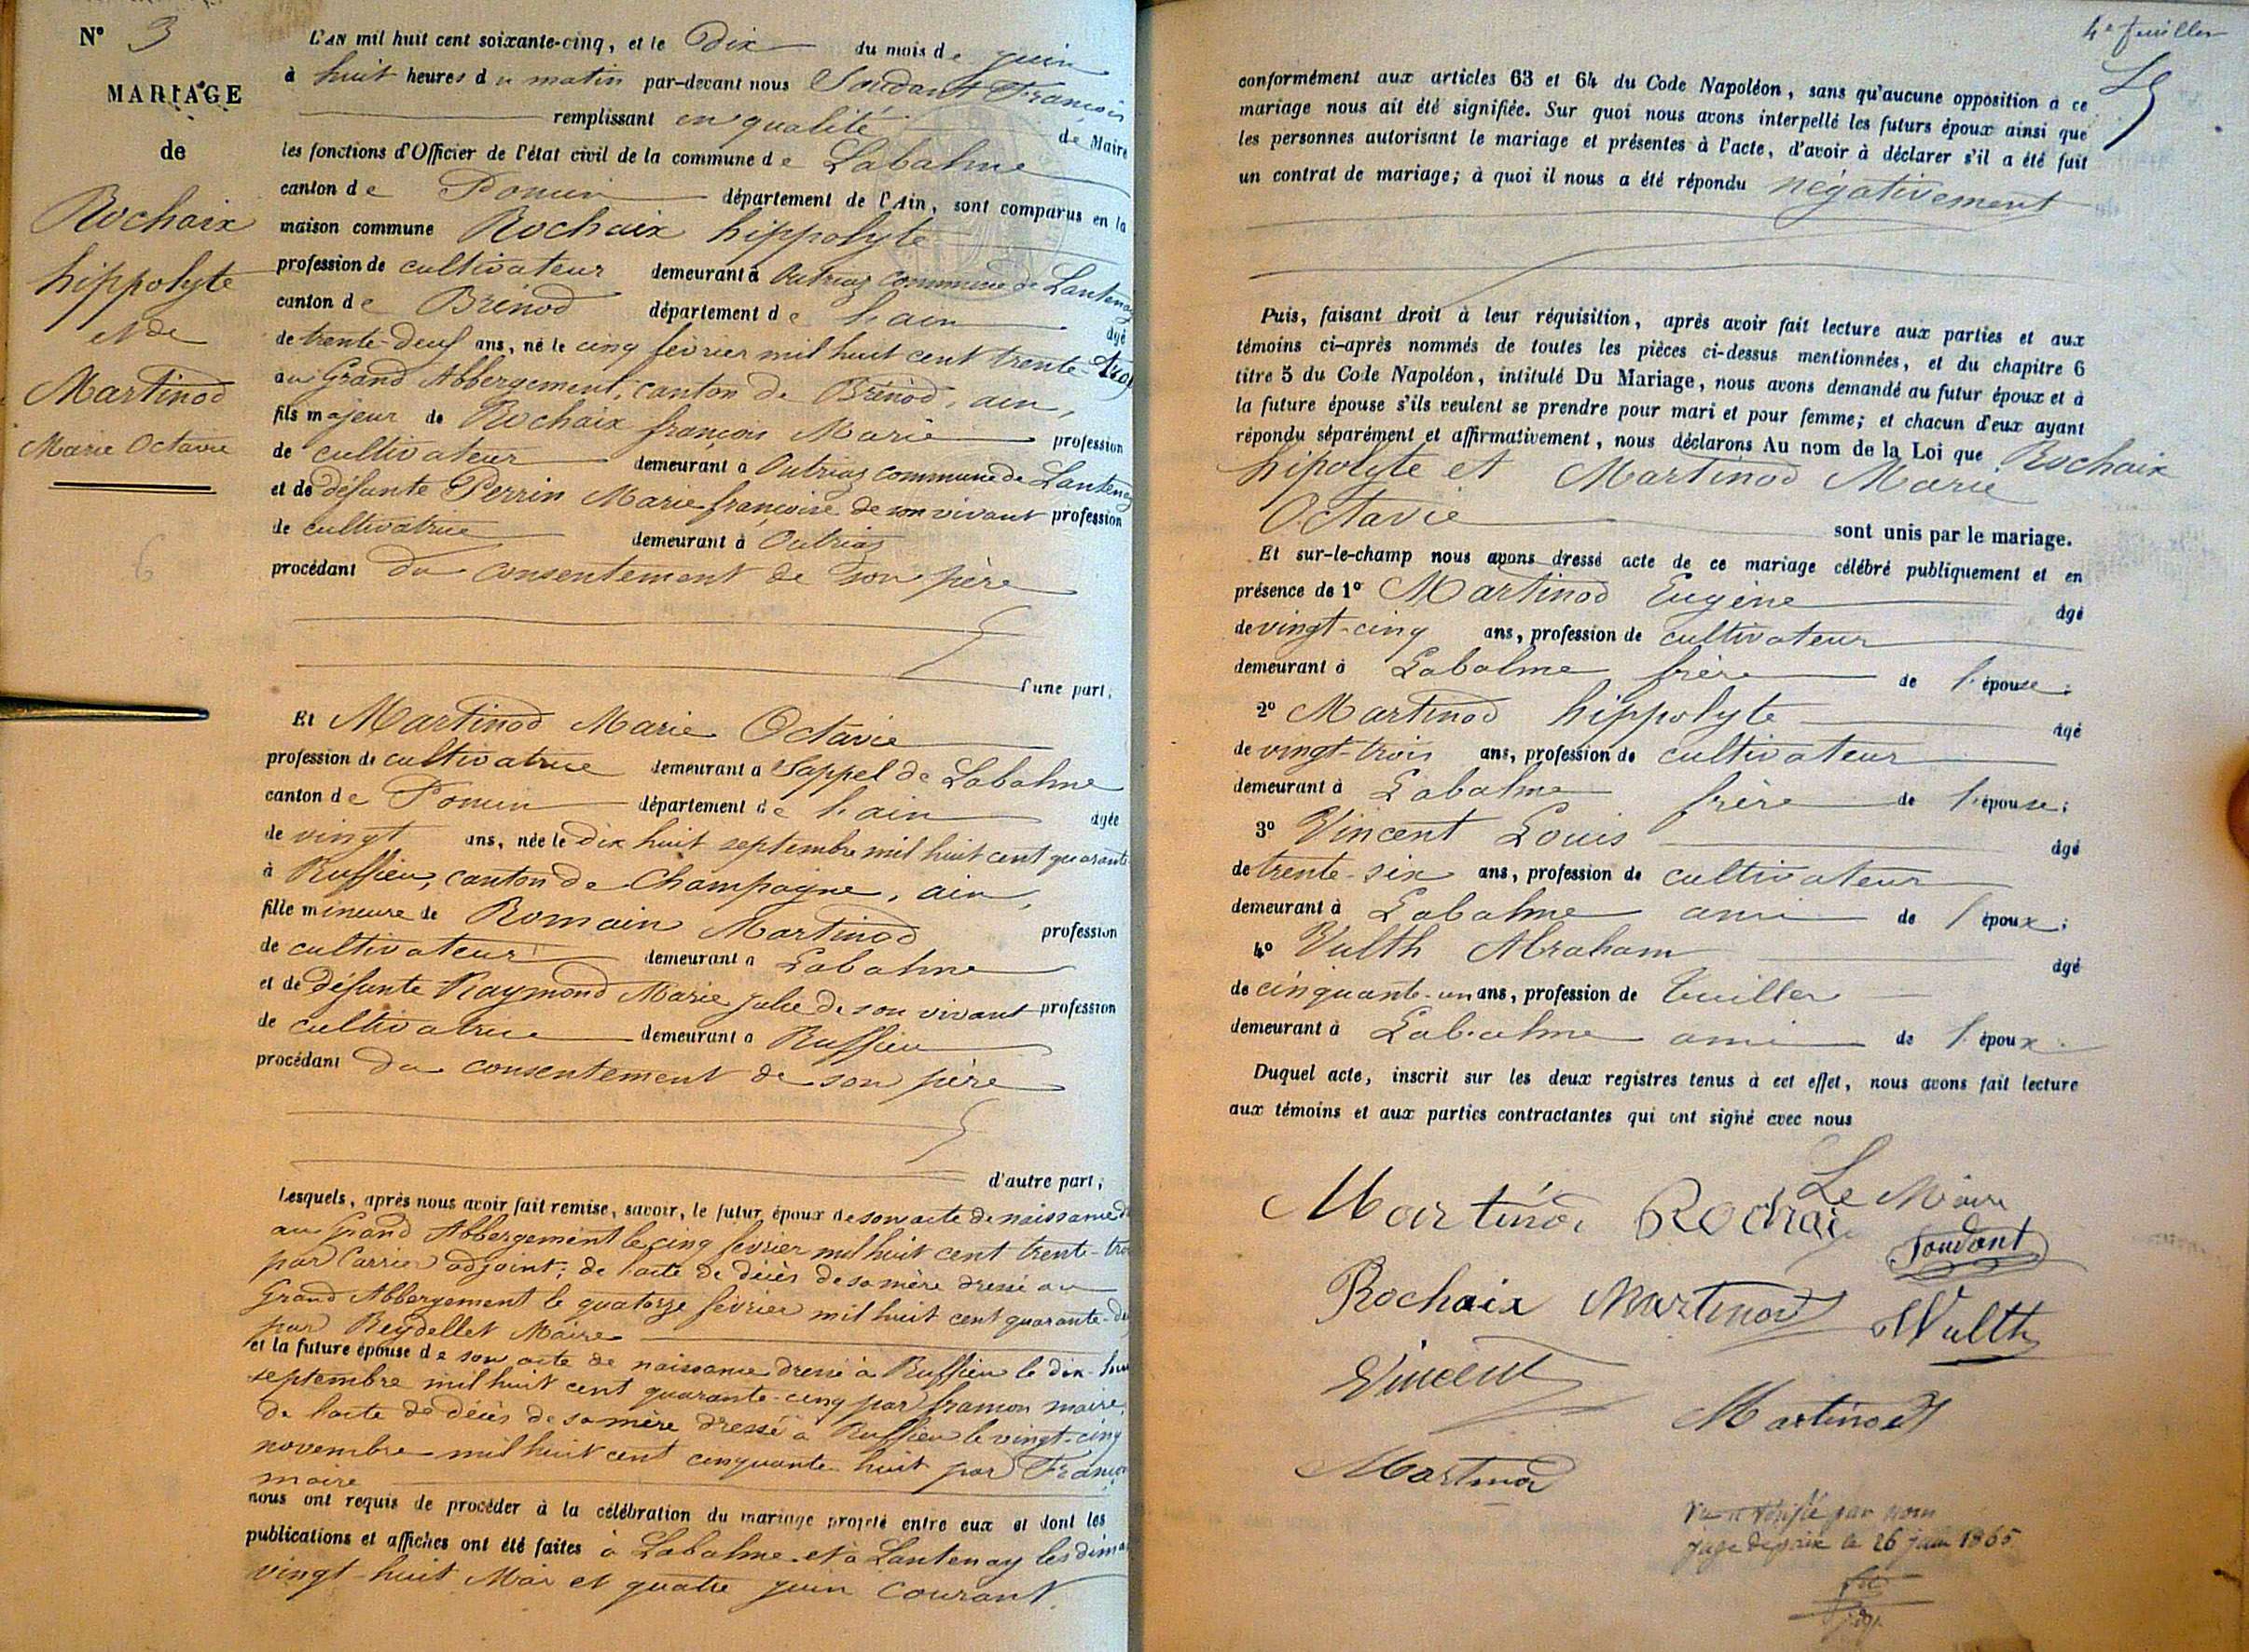 N° 3
MARIAGE
de
Rochaix
hippolyte
et de
Martinod
Marie Octavie
L'AN mil huit cent soixante-cinq, et le Dix du mois de juin
à huit heures du matin par-devant nous Soudant François
remplissant en qualité de Maire
les fonctions d'Officier de l'état civil de la commune de Labalme
canton de Poncin département de l'Ain, sont comparus en la
maison commune Rochaix hippolyte
profession de cultivateur demeurant à Outriaz commune de Lantenay
canton de Brénod département de l'ain âgé
de trente-deux ans, né le cinq février mil huit cent trente-trois
au Grand Abbergement, canton de Brénod, ain,
fils majeur de Rochaix françois Marie profession
de cultivateur demeurant à Outriaz commune de Lantenay
et de défunte Perrin Marie françoise de son vivant profession
de cultivatrice demeurant à Outriaz
procédant du consentement de son père
d'une part;
Et Martinod Marie Octavie
profession de cultivatrice demeurant à Sappel de Labalme
canton de Poncin département de l'ain âgée
de vingt ans, née le dix huit septembre mil huit cent quarante
à Ruffieu, canton de Champagne, ain,
fille mineure de Romain Martinod profession
de cultivateur demeurant à Labalme
et de défunte Raymond Marie Julie de son vivant profession
de cultivatrice demeurant à Ruffieu
procédant du consentement de son père
d'autre part;
Lesquels, après nous avoir fait remise, savoir, le futur époux de son acte de naissance
au Grand Abbergement le cinq février mil huit cent trente-trois
par Carrier adjoint; de l'acte de décès de sa mère dressé au
Grand Abbergement le quatorze février mil huit cent quarante-
par Reydellet Maire
et la future épouse de son acte de naissance dressé à Ruffieu le dix-huit
septembre mil huit cent quarante-cinq par framon maire,
de l'acte de décès de sa mère dressé à Ruffieu le vingt-cinq
novembre mil huit cent cinquante huit par Framon
maire
nous ont requis de procéder à la célébration du mariage projeté entre eux et dont les
publications et affiches ont été faites à Labalme et à Lantenay les
vingt-huit Mai et quatre juin courant.
4e feuillet
conformément aux articles 63 et 64 du Code Napoléon, sans qu'aucune opposition à ce
mariage nous ait été signifiée. Sur quoi nous avons interpellé les futurs époux ainsi que
les personnes autorisant le mariage et présentes à l'acte, d'avoir à déclarer s'il a été fait
un contrat de mariage; à quoi il nous a été répondu négativement
Puis, faisant droit à leur réquisition, après avoir fait lecture aux parties et aux
témoins ci-après nommés de toutes les pièces ci-dessus mentionnées, et du chapitre 6
titre 5 du Code Napoléon, intitulé Du Mariage, nous avons demandé au futur époux et à
la future épouse s'ils veulent se prendre pour mari et pour femme; et chacun d'eux ayant
répondu séparément et affirmativement, nous déclarons Au nom de la Loi que Rochaix
hipolyte et Martinod Marie
Octavie sont unis par le mariage.
Et sur-le-champ nous avons dressé acte de ce mariage célébré publiquement et en
présence de 1° Martinod Eugène âgé
de vingt-cinq ans, profession de cultivateur
demeurant à Labalme frère de l'épouse;
2° Martinod hippolyte âgé
de vingt-trois ans, profession de cultivateur
demeurant à Labalme frère de l'épouse;
3° Vincent Louis âgé
de trente-six ans, profession de cultivateur
demeurant à Labalme ami de l'époux;
4° Vulth Abraham âgé
de cinquante-un ans, profession de tuillier
demeurant à Labalme ami de l'époux.
Duquel acte, inscrit sur les deux registres tenus à cet effet, nous avons fait lecture
aux témoins et aux parties contractantes qui ont signé avec nous
Le Maire
Martinod Rochaix Soudant
Rochaix Martinod Wulth
Vincent Martinod
Martinod
Vu et vérifié par nous
juge de paix le 26 juin 1865